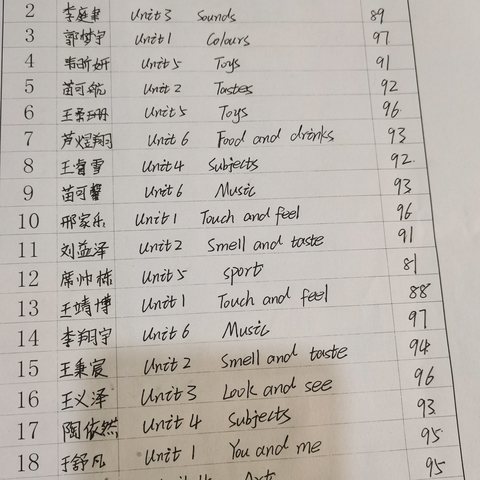 2 李庭聿 Unit 3 Sounds 89
3 郭梦宇 Unit 1 Colours 97
4 韦昕妍 Unit 5 Toys 91
5 苗可航 Unit 2 Tastes 92
6 王柔珊 Unit 5 Toys 96
7 芦煜翔 Unit 6 Food and drinks 93
8 王睿雪 Unit 4 Subjects 92
9 苗可馨 Unit 6 Music 93
10 邢家乐 Unit 1 Touch and feel 96
11 刘益泽 Unit 2 Smell and taste 91
12 席帅栋 Unit 5 sport 81
13 王靖博 Unit 1 Touch and feel 88
14 李翔宇 Unit 6 Music 97
15 王秉宸 Unit 2 Smell and taste 94
16 王义泽 Unit 3 Look and see 96
17 陶依然 Unit 4 Subjects 93
18 于舒凡 Unit 1 You and me 95
95